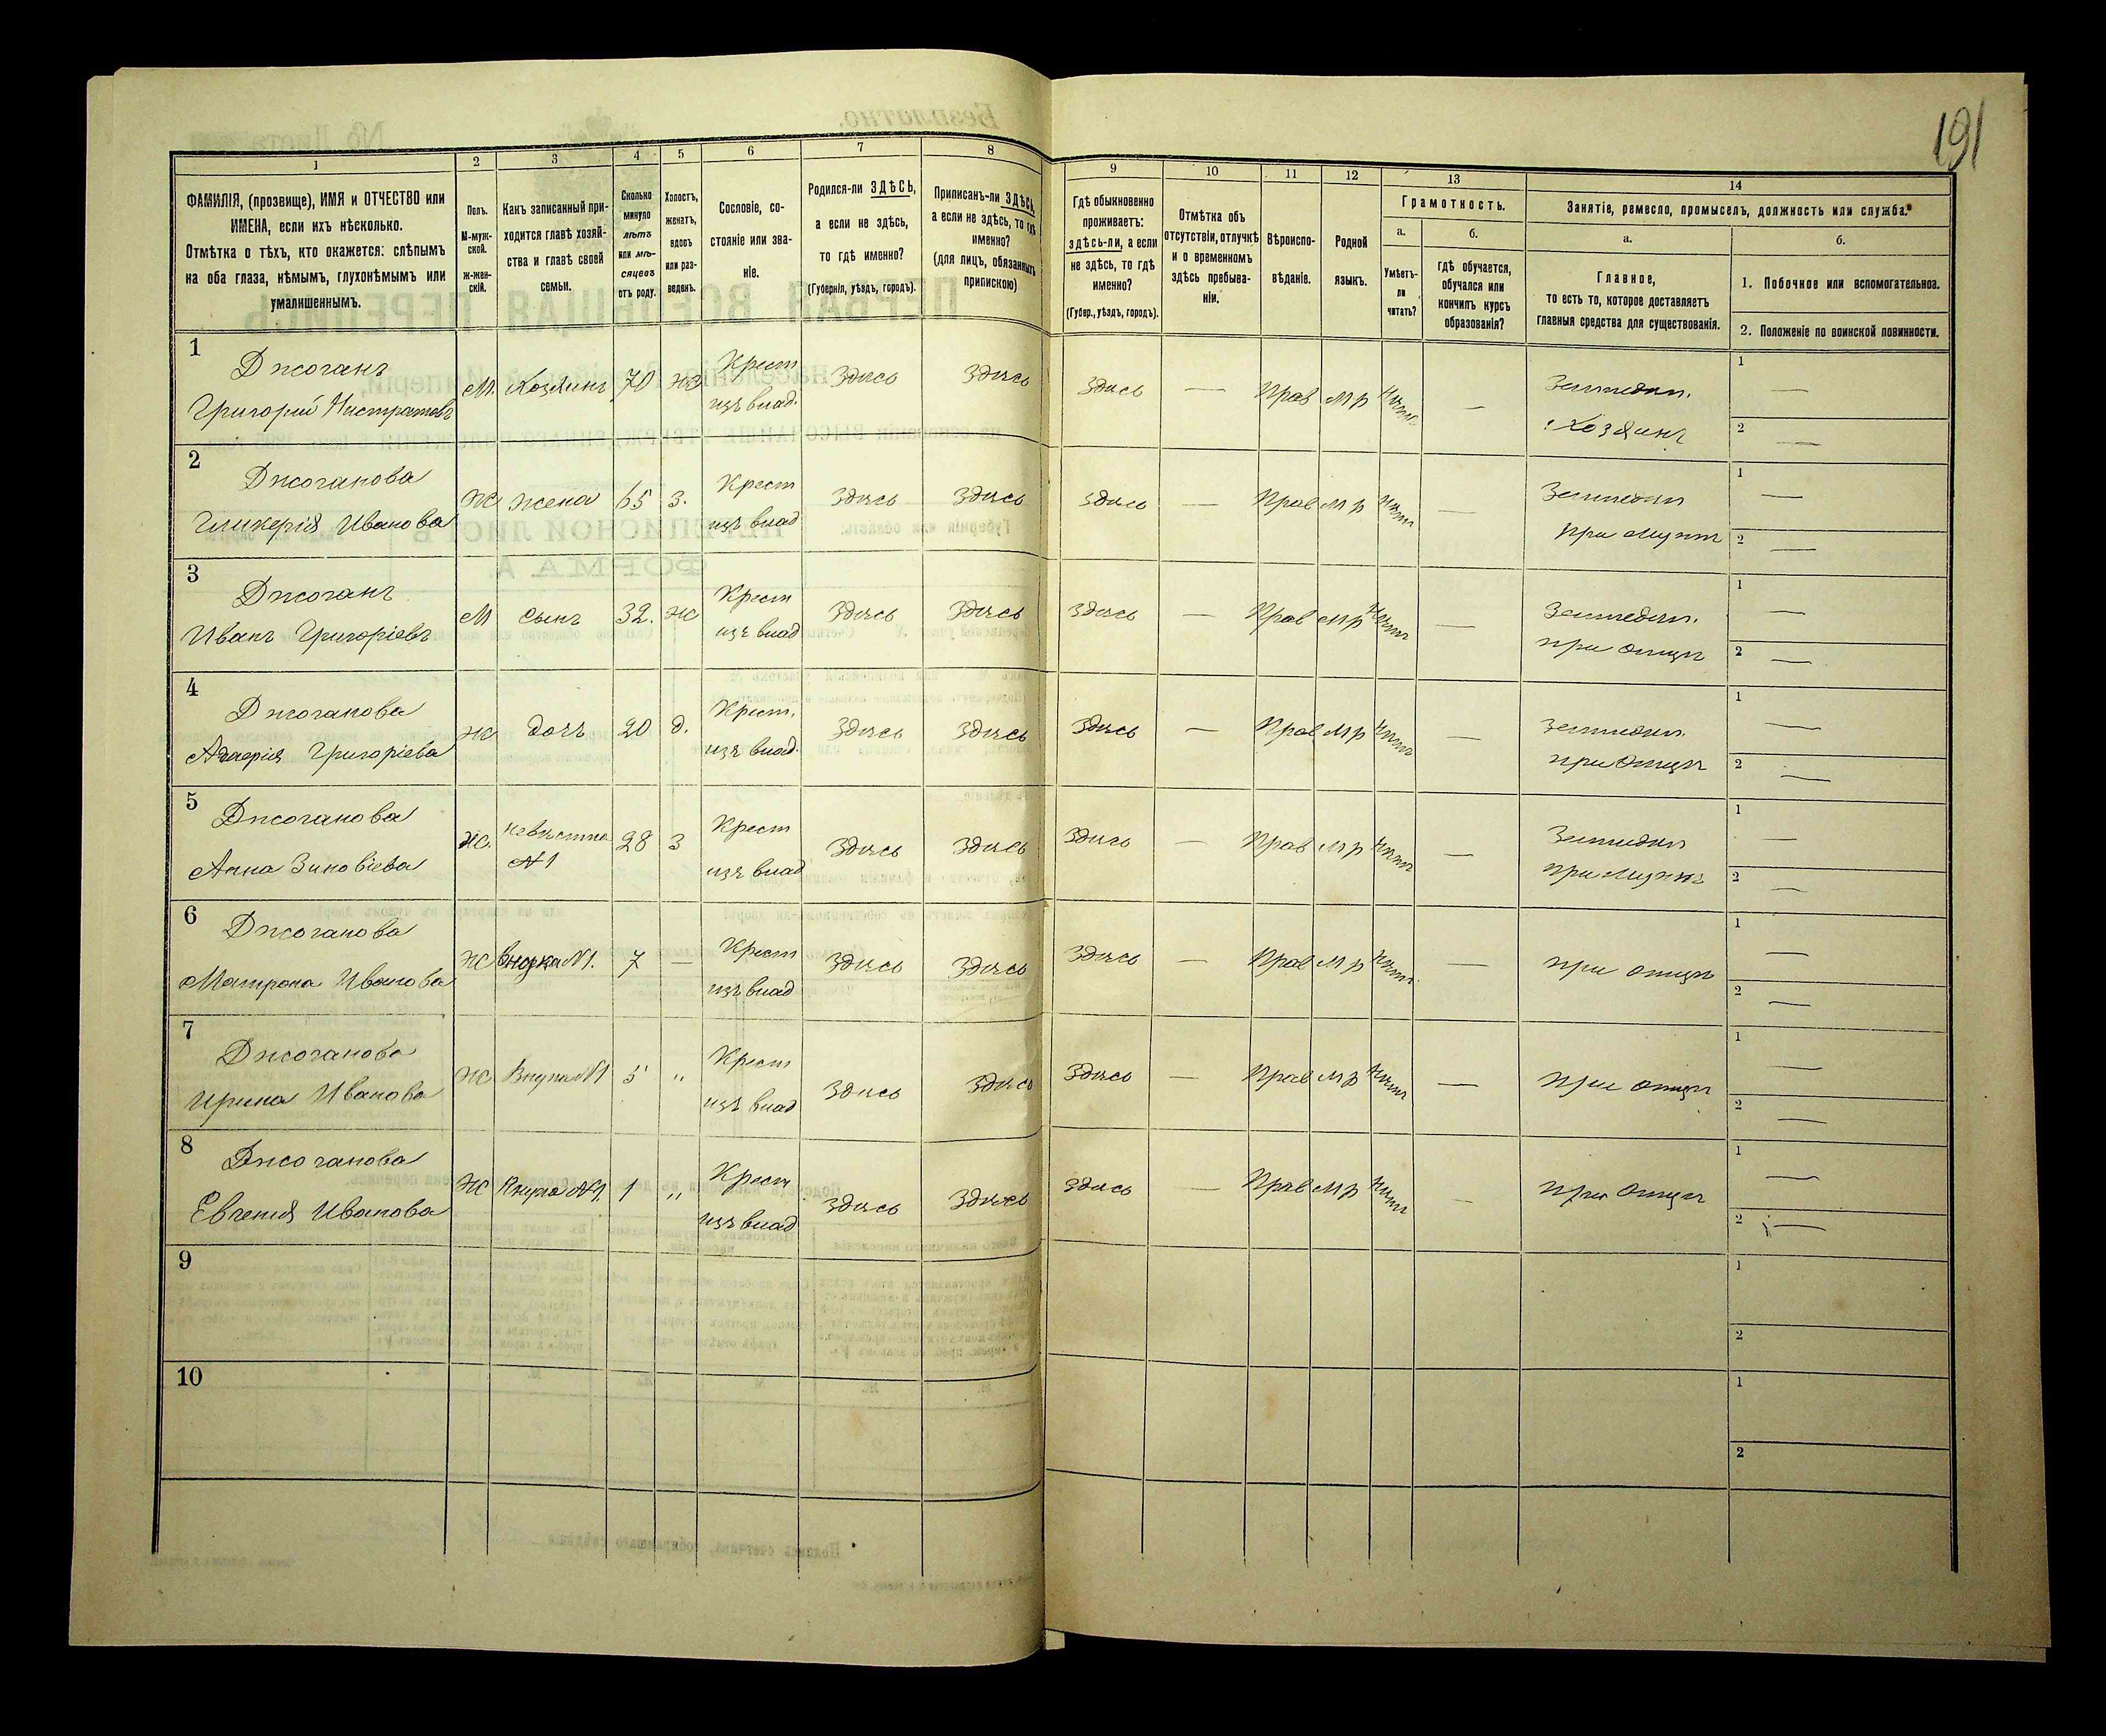 191
1 2 3 4 5 6 7 8 9 10 11 12 13 14
ФАМИЛІЯ, (прозвище), ИМЯ и ОТЧЕСТВО или
ИМЕНА, если ихъ нѣсколько.
Отмѣтка о тѣхъ, кто окажется: слѣпымъ
на оба глаза, нѣмымъ, глухонѣмымъ или
умалишеннымъ.
Полъ.
М-муж-
ской.
ж-жен-
скій.
Какъ записанный при-
ходится главѣ хозяй-
ства и главѣ своей
семьи.
Сколько
минуло
лѣтъ
или мѣ-
сяцевъ
отъ роду.
Холостъ,
женатъ,
вдовъ
или раз-
веденъ.
Сословіе, со-
стояніе или зва-
ніе.
Родился-ли ЗДѢСЬ,
а если не здѣсь,
то гдѣ именно?
(Губернія, уѣздъ, городъ).
Приписанъ-ли ЗДѢСЬ,
а если не здѣсь, то гдѣ
именно?
(для лицъ, обязанныхъ
припискою)
Гдѣ обыкновенно
проживаетъ:
здѣсь-ли, а если
не здѣсь, то гдѣ
именно?
(Губер., уѣздъ, городъ).
Отмѣтка объ
отсутствіи, отлучкѣ
и о временномъ
здѣсь пребыва-
ніи.
Вѣроиспо-
вѣданіе.
Родной
языкъ.
Грамотность.
а.
Умѣетъ-
ли
читать?
б.
гдѣ обучается,
обучался или
кончилъ курсъ
образованія?
Занятіе, ремесло, промыселъ, должность или служба.
а.
Главное,
то есть то, которое доставляетъ
главныя средства для существованія.
б.
1. Побочное или вспомогательное.
2. Положеніе по воинской повинности.
1 Джоганъ Крест Земледѣл. 1 —
Григорій М. Хозяинъ 70 изъ влад. Здѣсь Здѣсь Здѣсь — Прав мр Нѣтъ — Хозяинъ 2 —
2 Джоганова Крест Земледѣл 1 —
Гликерія Иванова Ж жена 65 з. изъ влад Здѣсь Здѣсь Здѣсь — Прав мр Нѣтъ — при мужѣ 2 —
3 Джоганъ Крест Земледѣл. 1 —
Иванъ Григоріевъ М Сынъ 32. ж изъ влад Здѣсь Здѣсь Здѣсь — Прав мр Нѣтъ — при отцѣ 2 —
4 Джоганова Крест. Земледѣл. 1 —
Григоріева ж дочь 20 д. изъ влад. Здѣсь Здѣсь Здѣсь — Прав мр Нѣтъ — при отцѣ 2 —
5 Джоганова невѣстка Крест Земледѣл 1 —
Анна Зиновіева ж. №1 28 з изъ влад Здѣсь Здѣсь Здѣсь — Прав мр Нѣтъ — при мужѣ 2 —
6 Джоганова Крест 1 —
Матрона Иванова ж внучка №1. 7 — изъ влад Здѣсь Здѣсь Здѣсь — Прав мр Нѣтъ — при отцѣ 2 —
7 Джоганова Крест 1 —
Ирина Иванова ж №1 5 „ изъ влад Здѣсь Здѣсь Здѣсь — Прав мр Нѣтъ — при отцѣ 2 —
8 Джоганова Крест 1 —
Евгенія Иванова ж №1 1 „ изъ влад Здѣсь Здѣсь Здѣсь — Прав мр Нѣтъ — при отцѣ 2 —
9 1
2
10 1
2